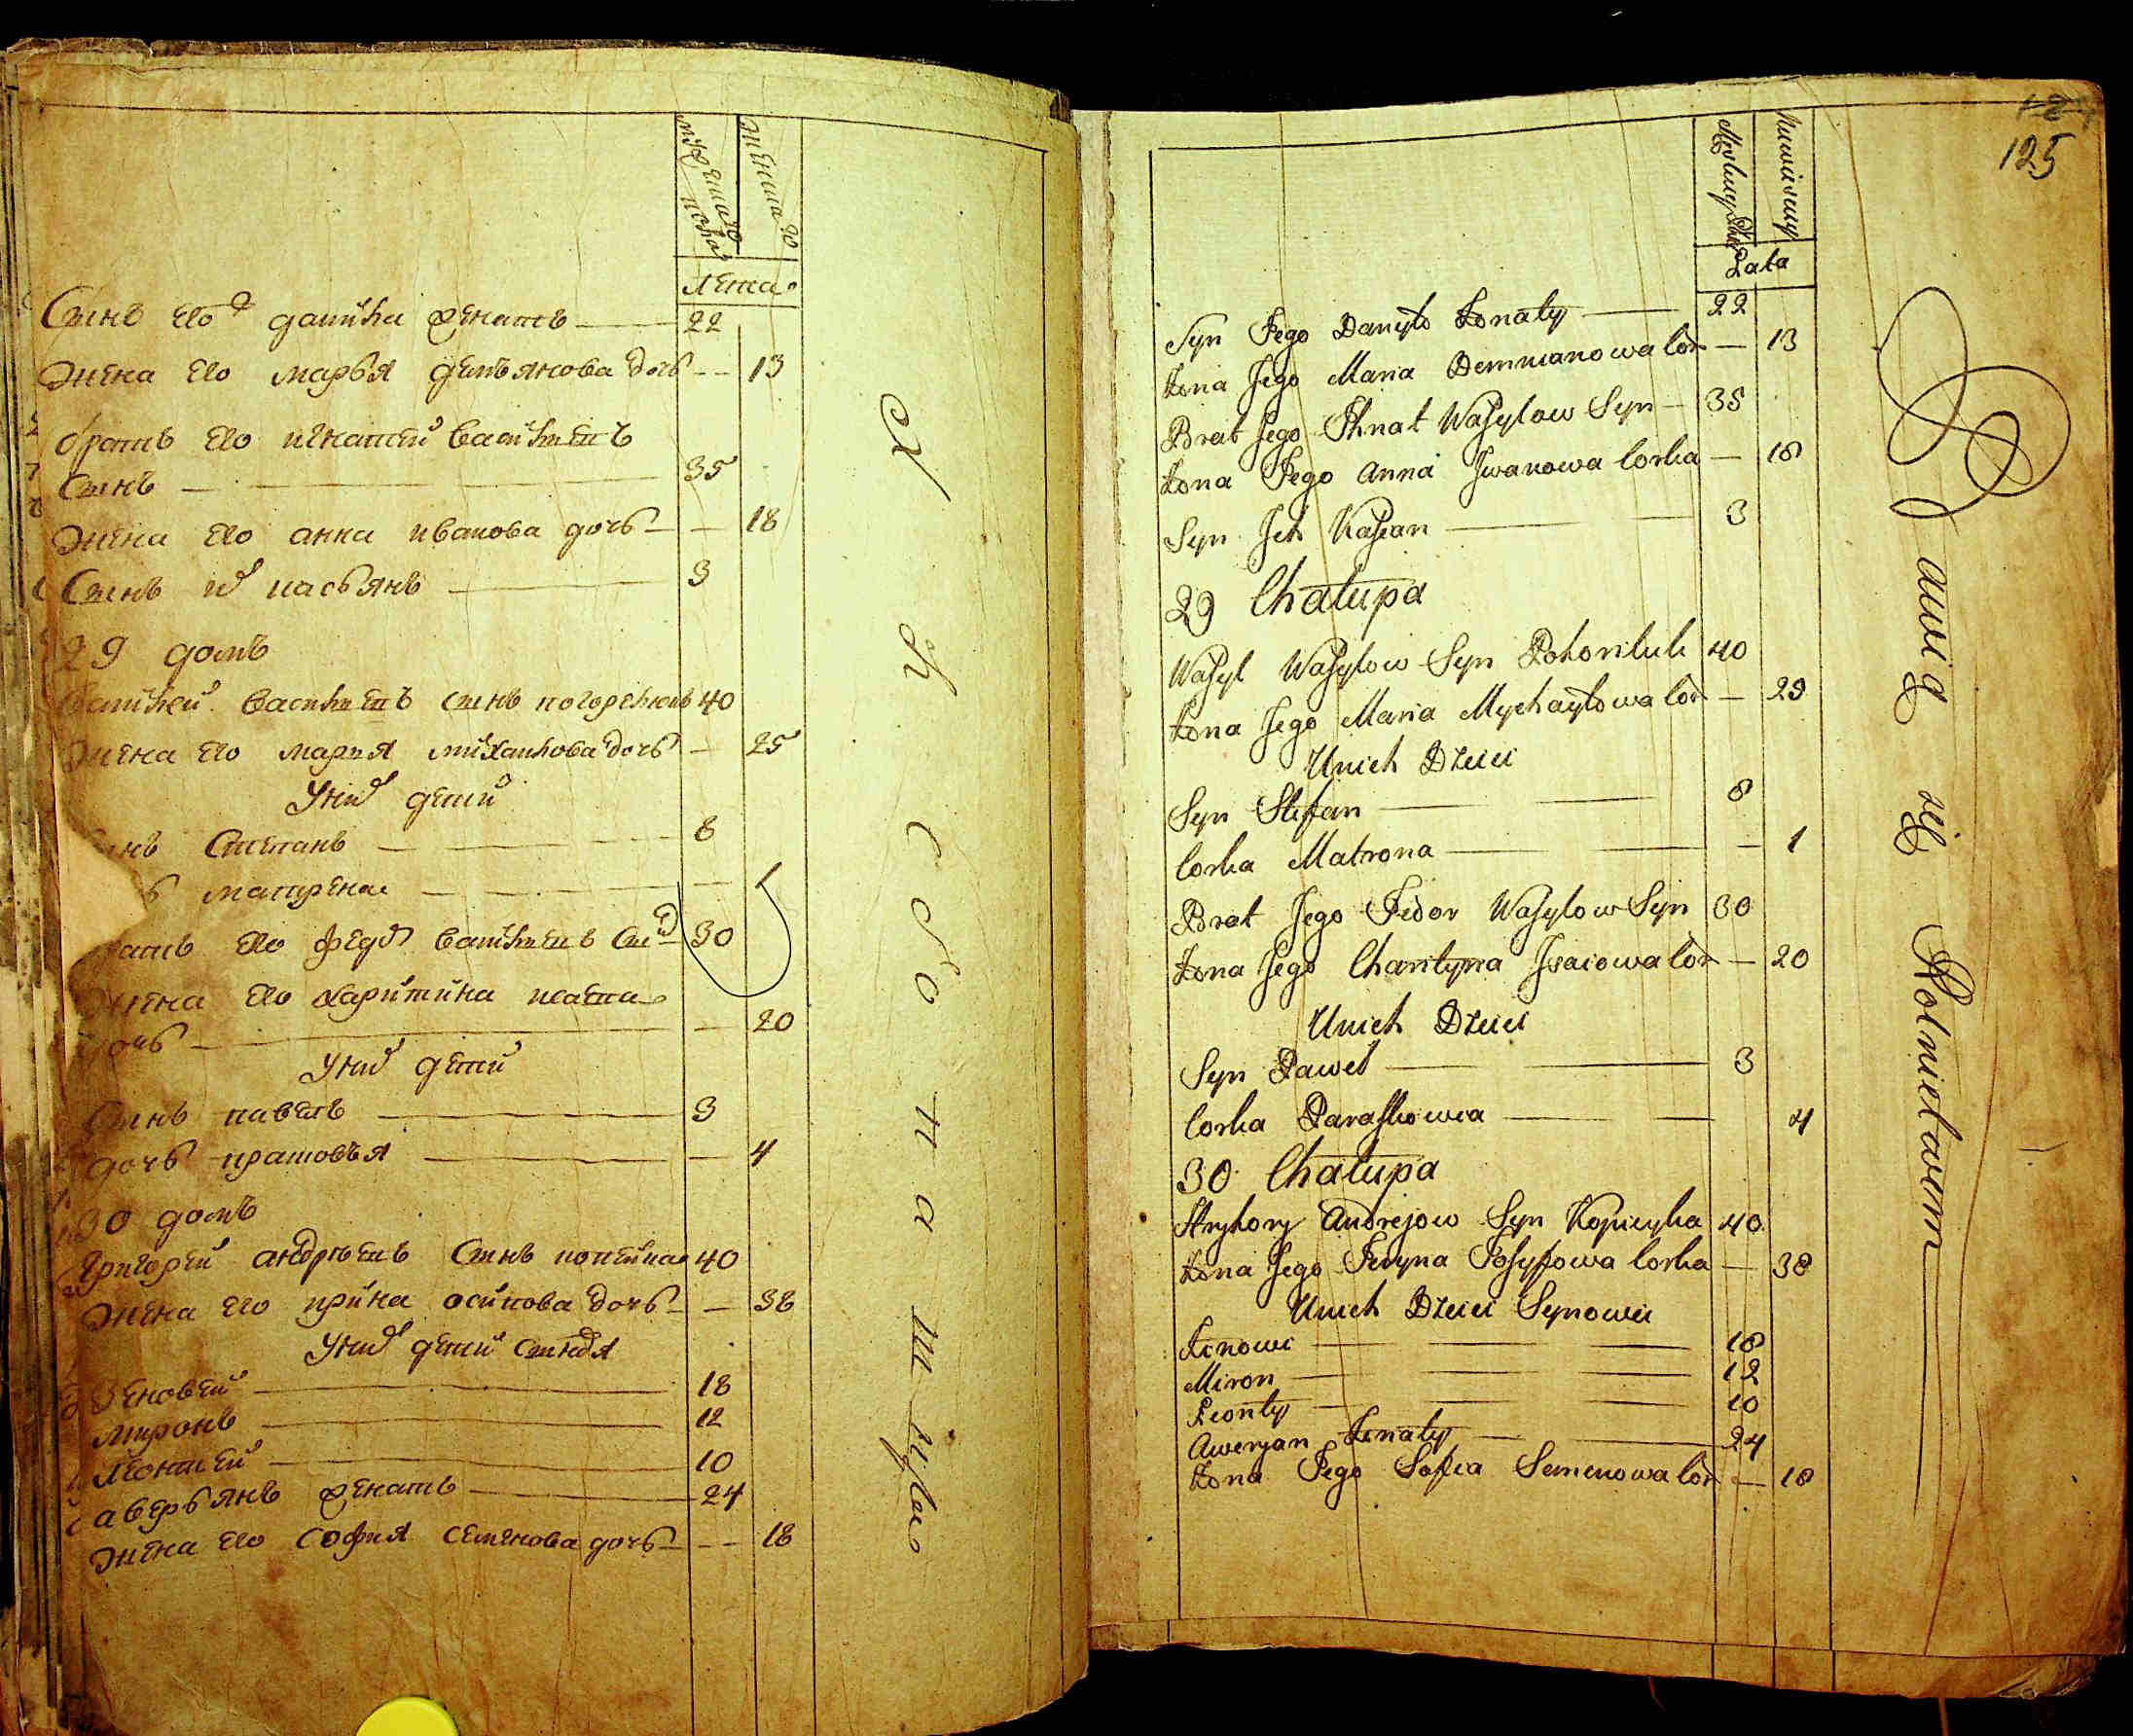 мужеска пола
женска го
лета
Сынъ его данило женатъ 22
жена его марья демьянова дочь 13
братъ его игнатей василиевъ
сынъ 35
жена его анна иванова дочь 18
Сынъ их касьянъ 3
29 домъ
василей василиевъ сынъ погорелюкъ 40
жена его мария михаилова дочь 25
У них детей
Степанъ 8
матрена 1
его федор василиевъ 30
жена его харитина
дочь 20
У них детей
Сынъ павелъ 3
дочь прасковья 4
30 домъ
григорей андреевъ Сынъ копейка 40
жена его ирина осипова дочь 38
У них детей сыновя
Зеновей 18
миронъ 12
леонтей 10
аверьянъ женатъ 24
жена его софия семенова дочь 18
125
Męskiey Płci
Niewieskiey
Lata
Syn Jego Danyło Żonaty 22
Żona Jego Maria Demmianowa Cór 13
Brat Jego Ihnat Wasylow Syn 35
Żona Jego Anna Jwanowa Corka 18
Syn Jch Kasian 3
29 Chałupa
Wasyl Wasylow Syn Pohoriluk 40
Żona Jego Maria Mychayłowa Cór 29
U nich Dzieci
Syn Stefan 8
Corka Matrona 1
Brat Jego Fedor Wasylow Syn 30
Żona Jego Charytyna Jsaiowa Cór 20
U nich Dzieci
Syn Paweł 3
Corka Paraskowia 4
30 Chałupa
Hryhory Andrejow Syn Kopieyka 40
Żona Jego Jeryna Josypowa Corka 38
U nich Dzieci Synowie
Zenowi 18
Miron 12
Leonty 10
Aweryan Żenaty 24
Żona Jego Sofia Semenowa Cór 18